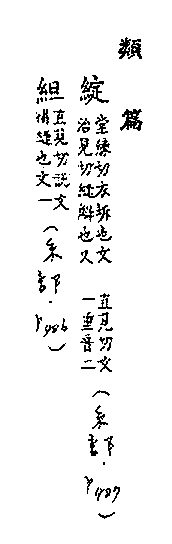 類篇
綻 堂練切衣訴也文
治見切縫解也又
直見切文
一重音二
(糸部.P487)
䋎 直見切說文
補縫也文一
(糸部.P486)